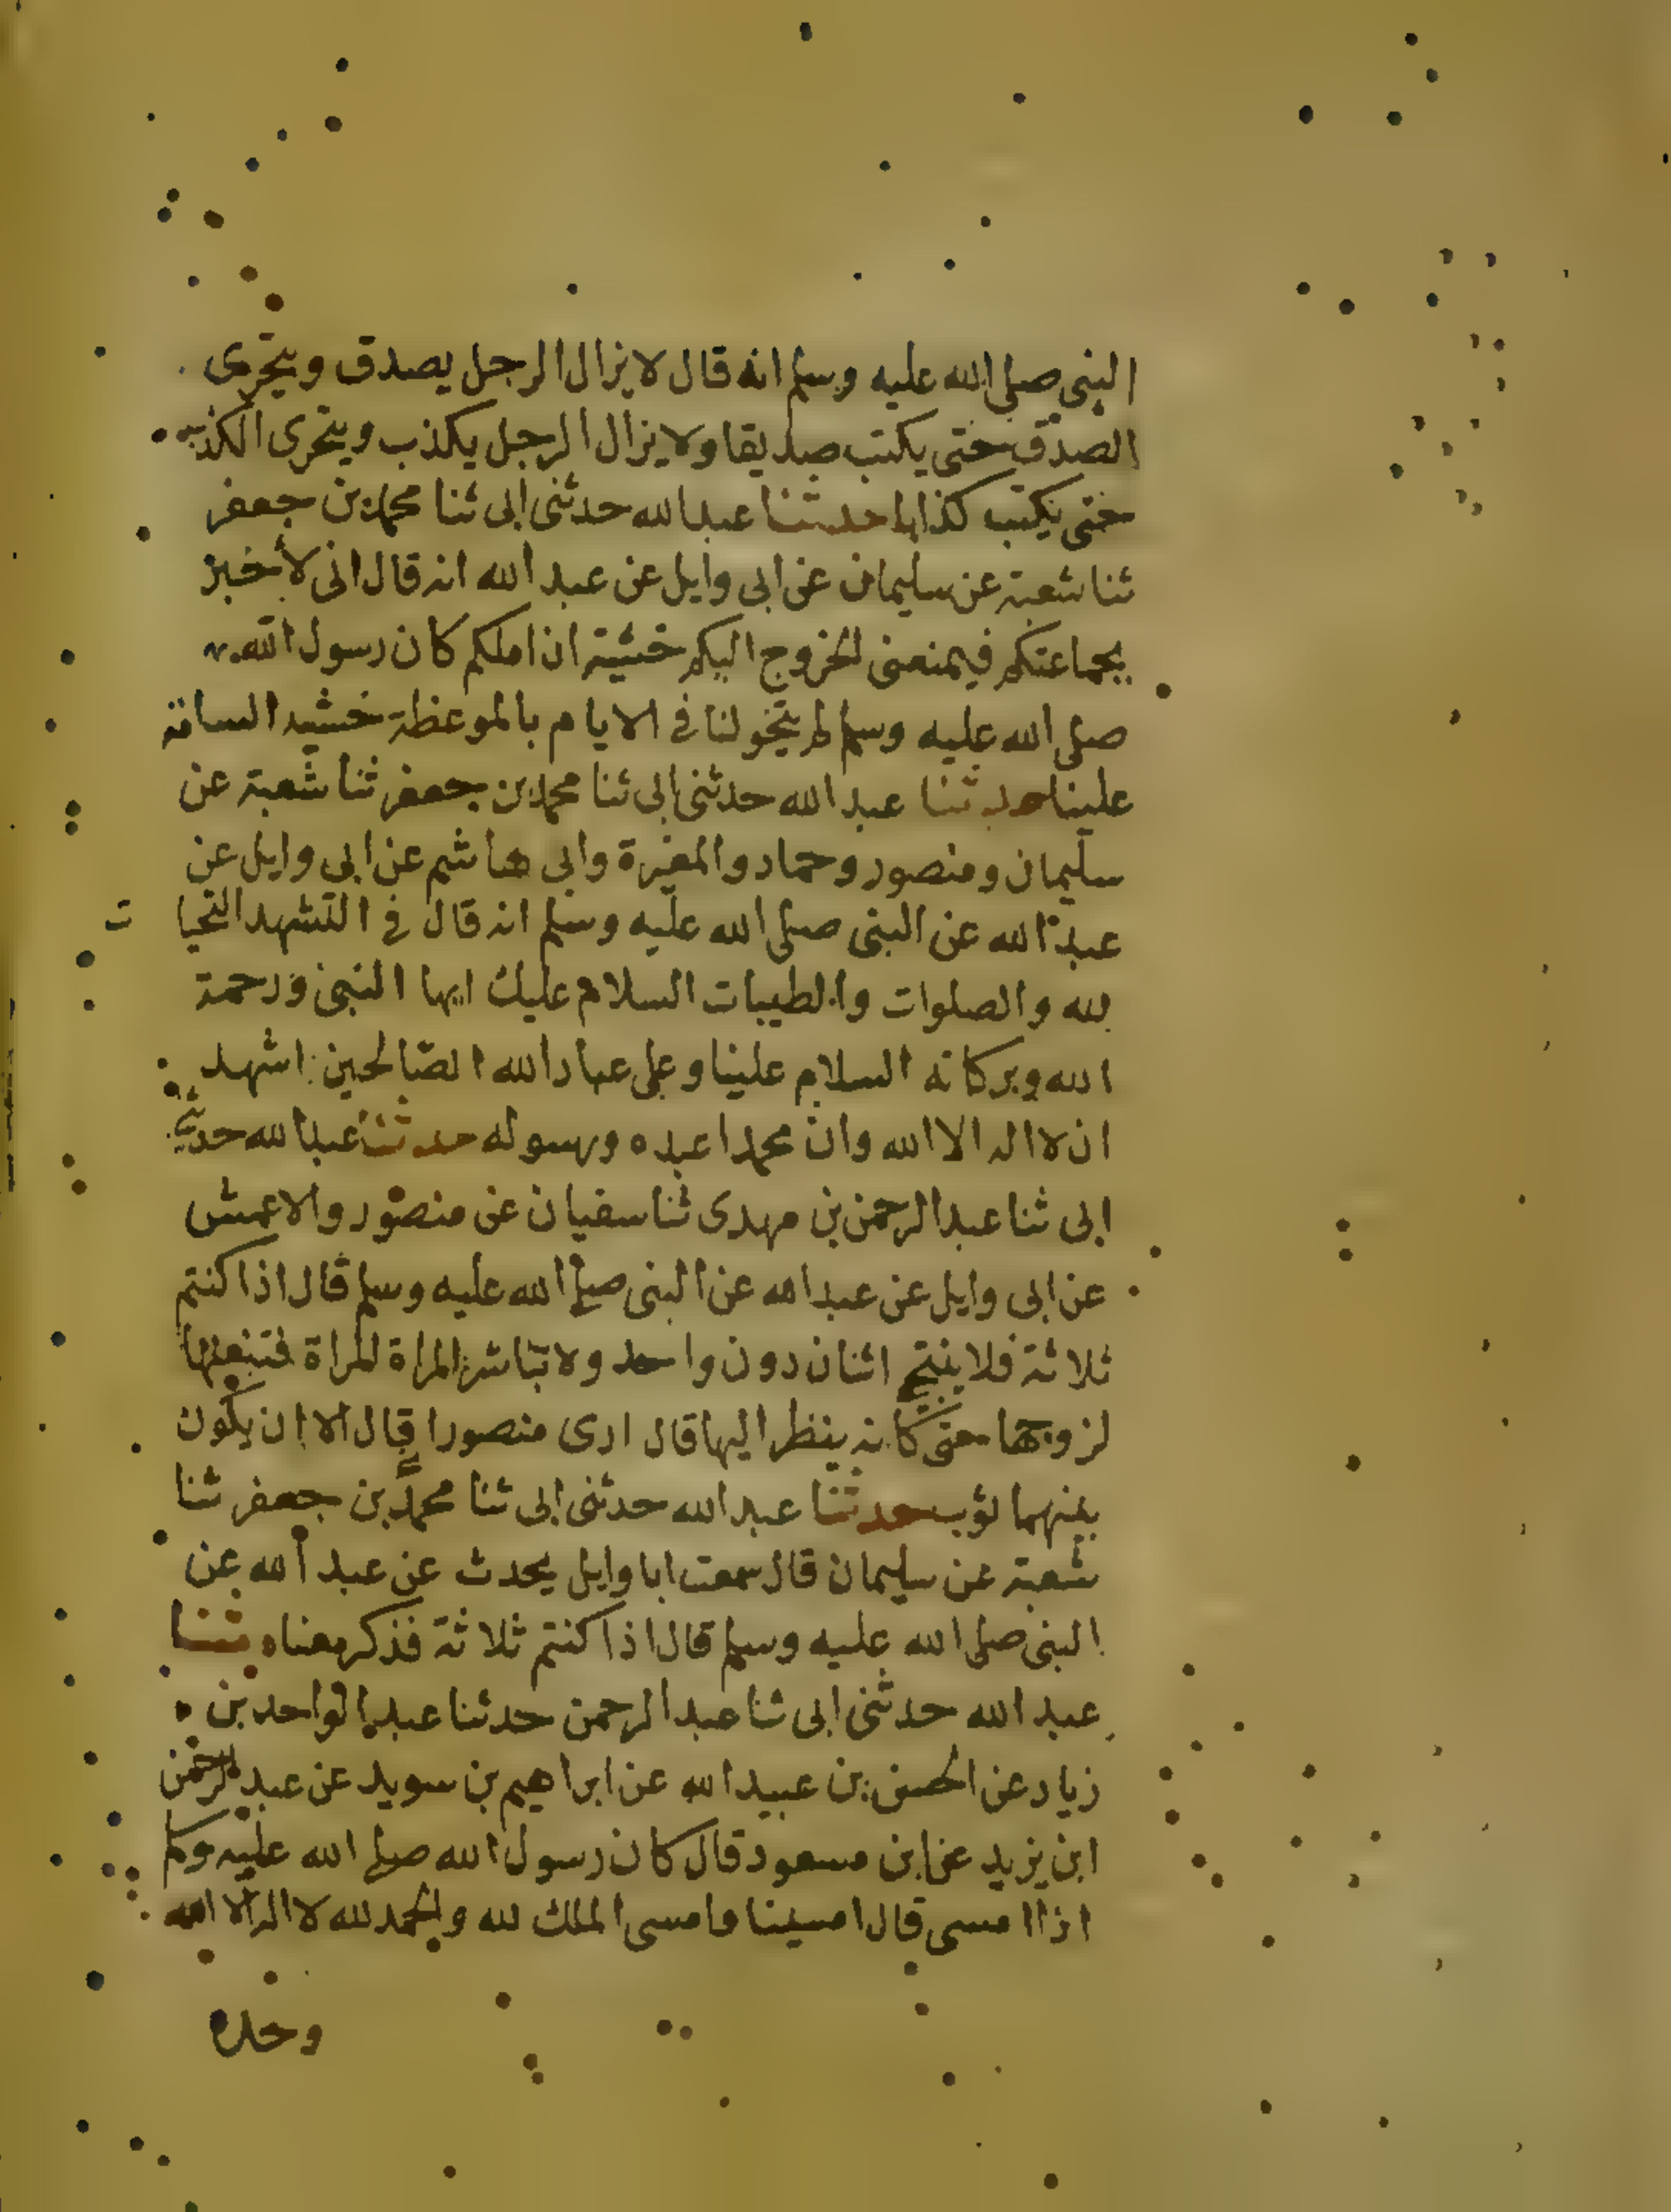 النبى صلى الله عليه وسلم انه قال لا يزال الرجل يصدق ويتحرى
الصدق حتى يكتب صديقا ولا يزال الرجل يكذب ويتحرى الكذب
حتى يكتب كذابا حدثنا عبد الله حدثنى ابى ثنا محمد بن جعفر
ثنا شعبة عن سليمان عن ابى وايل عن عبد الله انه قال انى لأخبر
بجماعتكم فيمنعنى الخروج اليكم خشية ان املكم كان رسول الله
صلى الله عليه وسلم يتخولنا فى الايام بالموعظة خشية السامة
علينا حدثنا عبد الله حدثنى ابى ثنا محمد بن جعفر ثنا شعبة عن
سليمان ومنصور وحماد والمغيرة وابى هاشم عن ابى وايل عن
عبد الله عن النبى صلى الله عليه وسلم انه قال فى التشهد التحيا ت
لله والصلوات والطيبات السلام عليك ايها النبى ورحمة
الله وبركاته السلام علينا وعلى عباد الله الصالحين اشهد
ان لا اله الا الله وان محمدا عبده ورسوله حدثنا عبد الله حدثنى
ابى ثنا عبد الرحمن بن مهدى ثنا سفيان عن منصور والاعمش
عن ابى وايل عن عبد الله عن النبى صلى الله عليه وسلم قال اذا كنتم
ثلاثة فلا ينتج اثنان دون واحد ولا تباشر المراة المراة فتنعتها
لزوجها حتى كانه ينظر اليها قال ارى منصورا قال الا ان يكون
بينهما ثوب حدثنا عبد الله حدثنى ابى ثنا محمد بن جعفر ثنا
شعبة عن سليمان قال سمعت ابا وايل يحدث عن عبد الله عن
النبى صلى الله عليه وسلم قال اذا كنتم ثلاثة فذكر معناه ثنا
عبد الله حدثنى ابى ثنا عبد الرحمن حدثنا عبد الواحد بن
زياد عن الحسن بن عبيد الله عن ابراهيم بن سويد عن عبد الرحمن
ابن يزيد عن ابن مسعود قال كان رسول الله صلى الله عليه وسلم
اذا امسى قال امسينا وامسى الملك لله والحمد لله لا اله الا الله
وحده